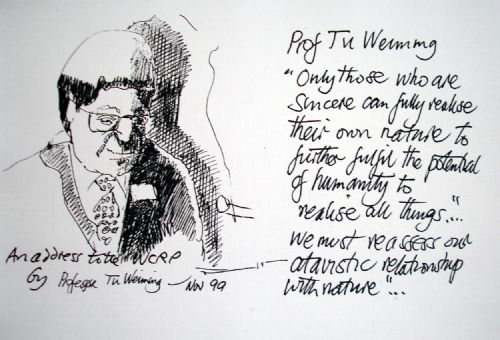 Prof Tu Weiming
"Only those who are
sincere can fully realise
their own nature to
further fulfil the potential
of humanity to
realise all things..."
We must reassess our
atavistic relationship
with nature"...
An address to the WCRP
by Professor Tu Weiming — Nov 99